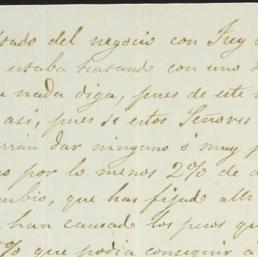 tado del negocio con Frey
estaba tratando con uno
nada diga, pues de este
así, pues si estos Señores
rrán dar ninguno ó muy
o por lo menos 2% de
mbio, que has fijado alti
han causado los pesos que
% que podia conseguir á